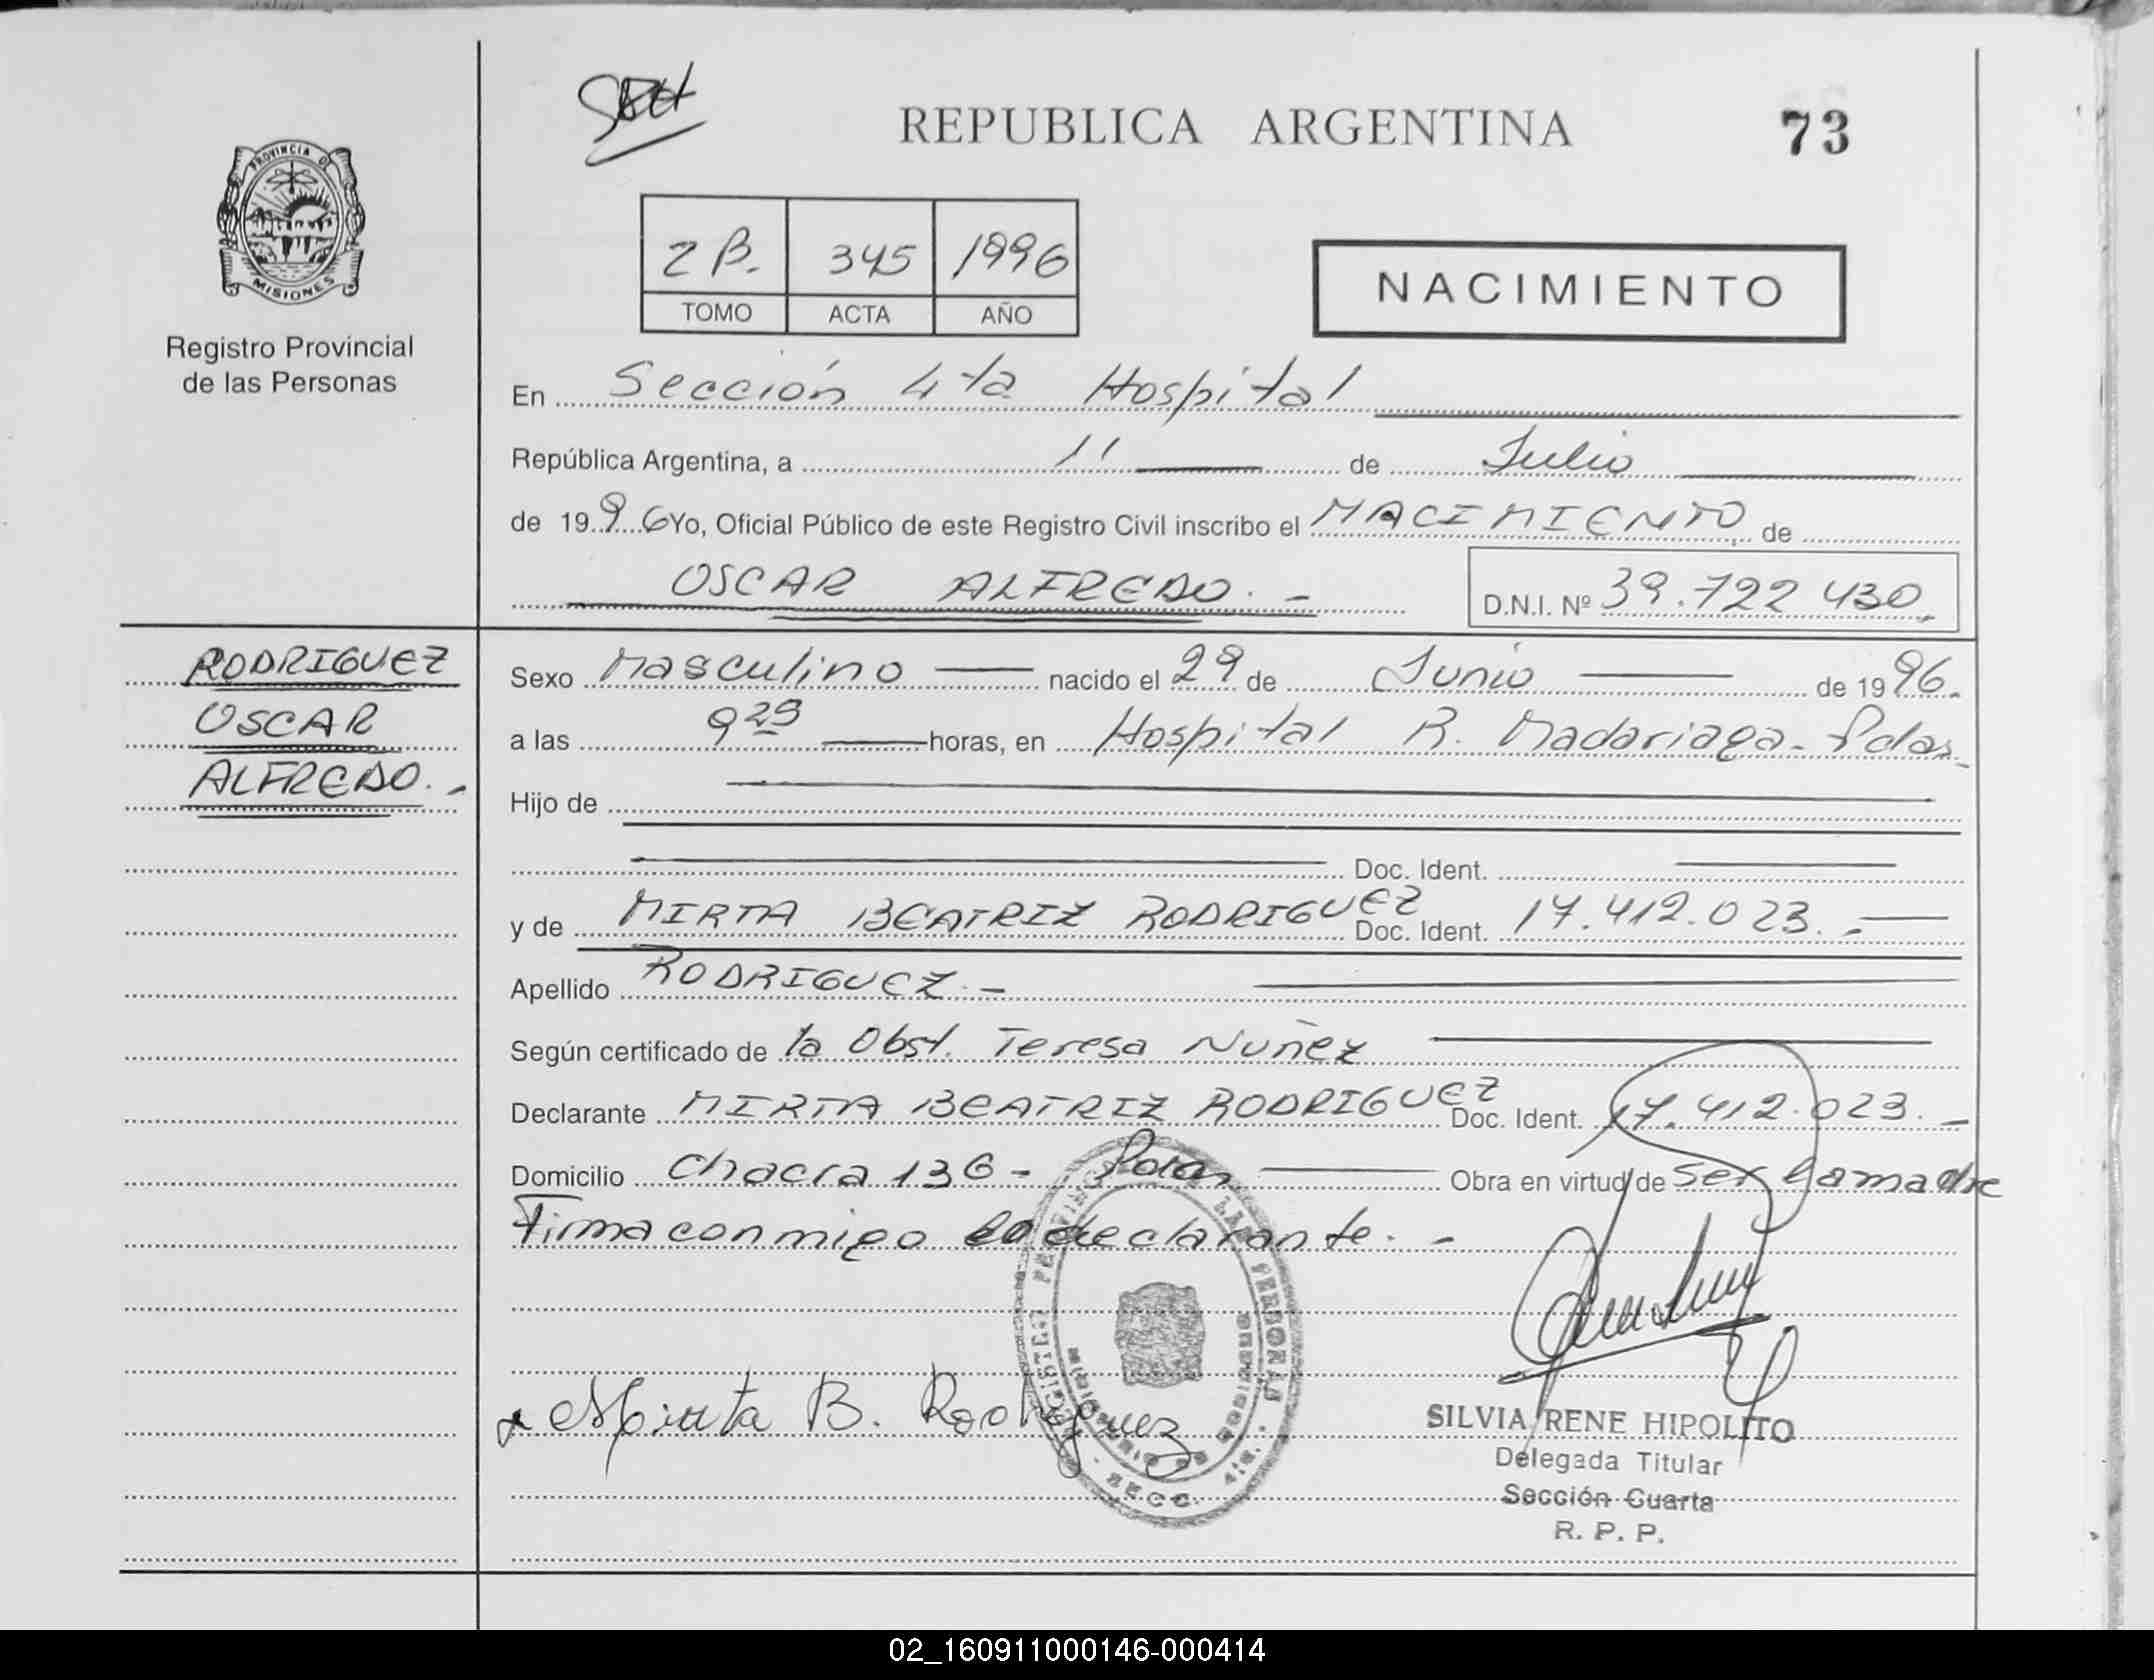 REPUBLICA ARGENTINA 73
PROVINCIA DE
MISIONES
Registro Provincial
de las Personas
2 B. 345 1996
TOMO ACTA AÑO
NACIMIENTO
En Sección 4ta Hospital
República Argentina, a 11 de Julio
de 19 96 Yo, Oficial Público de este Registro Civil inscribo el NACIMIENTO de
OSCAR ALFREDO. - D.N.I. Nº 39.722 430.
RODRIGUEZ
OSCAR
ALFREDO. -
Sexo Masculino nacido el 29 de Junio de 19 96.
a las 9 29 horas, en Hospital R. Madariaga - Pdas.
Hijo de
Doc. Ident.
y de MIRTA BEATRIZ RODRIGUEZ Doc. Ident. 17.412.023. -
Apellido RODRIGUEZ. -
Según certificado de la Obst. Teresa Nuñez
Declarante MIRTA BEATRIZ RODRIGUEZ Doc. Ident. 17.412.023. -
Domicilio Chacra 136 - Pdas Obra en virtud de ser la madre
Firma conmigo la declarante. -
Mirta B. Rodriguez
SILVIA RENE HIPOLITO
Delegada Titular
Sección Cuarta
R. P. P.
02_160911000146-000414